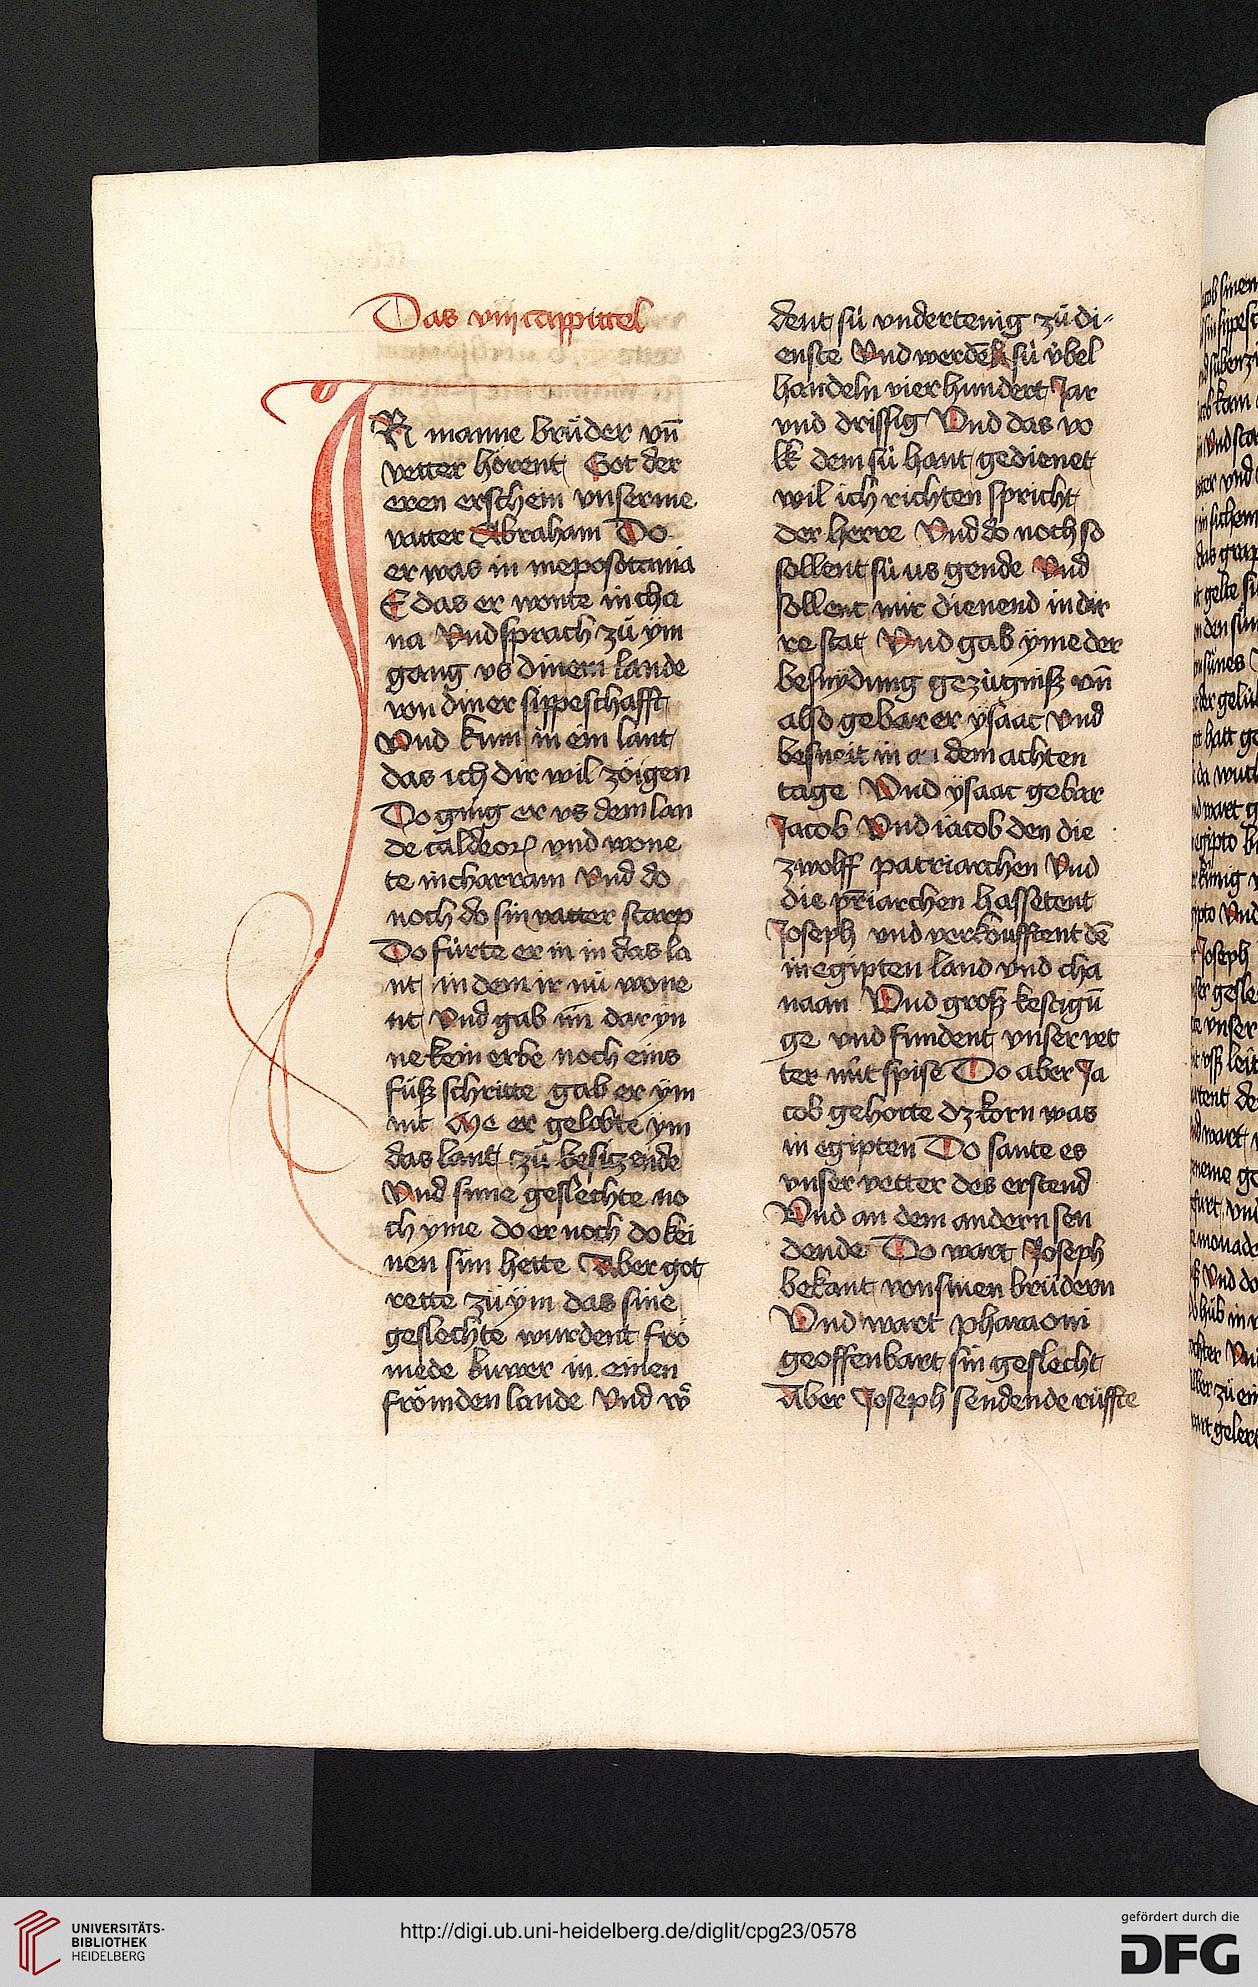 Das viij cappittel
IR manne brüder vn̄
vetter hörent Got der
eren erschein vnserme
vatter Abraham Do
er was in meposotania
E das er wonte in cha
na Vnd sprach zů ÿm
gang vs dinem lande
von diner sippeschafft
Vnd kum in ein lant
das ich dir wil zöigen
Do ging er vs dem lan
de caldeoꝝ vnd wone
te in charram vnd do
noch do sin vatter starp
Do fürte er in in das la
nt in dem ir nü wone
nt Vnd gab im̄ dar yn
ne kein erbe noch eins
füß schritte gab er ÿm
nit Me er gelobte ym
das lant zů besitzende
Vnd sinne geslechte no
ch yme do er noch do kei
nen sün hette Aber got
rette zů ÿm das sine
geslechte wurdent frö
mede buwer in einen
frömden lande Vnd w̄
dent sü vndertenig zů di-
enste Vnd werdēt sü übel
handeln vier hundert Jar
vnd drissig Vnd das vo
lk dem sü hant gedienet
wil ich richten spricht
der herre Vnd do noch so
sollent sü us gende Vnd
sollent mir dienend in dir
re stat Vnd gab ÿme der
besnÿdung gezügniß vn̄
also gebar er ÿsaac vnd
besneit in an dem achten
tage Vnd ÿsaac gebar
Jacob Vnd iacob den die
zwolff patriarchen Vnd
die pr̄iarchen hassetent
Joseph vnd verkoufftent dē
in egipten land vnd cha
naan Vnd groß kestigū
ge vnd fundent vnser vet
ter nit spise Do aber Ja
cob gehorte dz korn was
in egipten Do sante es
vnser vetter des erstend
Vnd an dem andern sen
dende Do wart Joseph
bekant von sinen brüdern
Vnd wart pharaoni
geoffenbart sin geslecht
Aber Joseph sendende rüffte
UNIVERSITÄTS-
BIBLIOTHEK
HEIDELBERG
http://digi.ub.uni-heidelberg.de/diglit/cpg23/0578
gefördert durch die
DFG